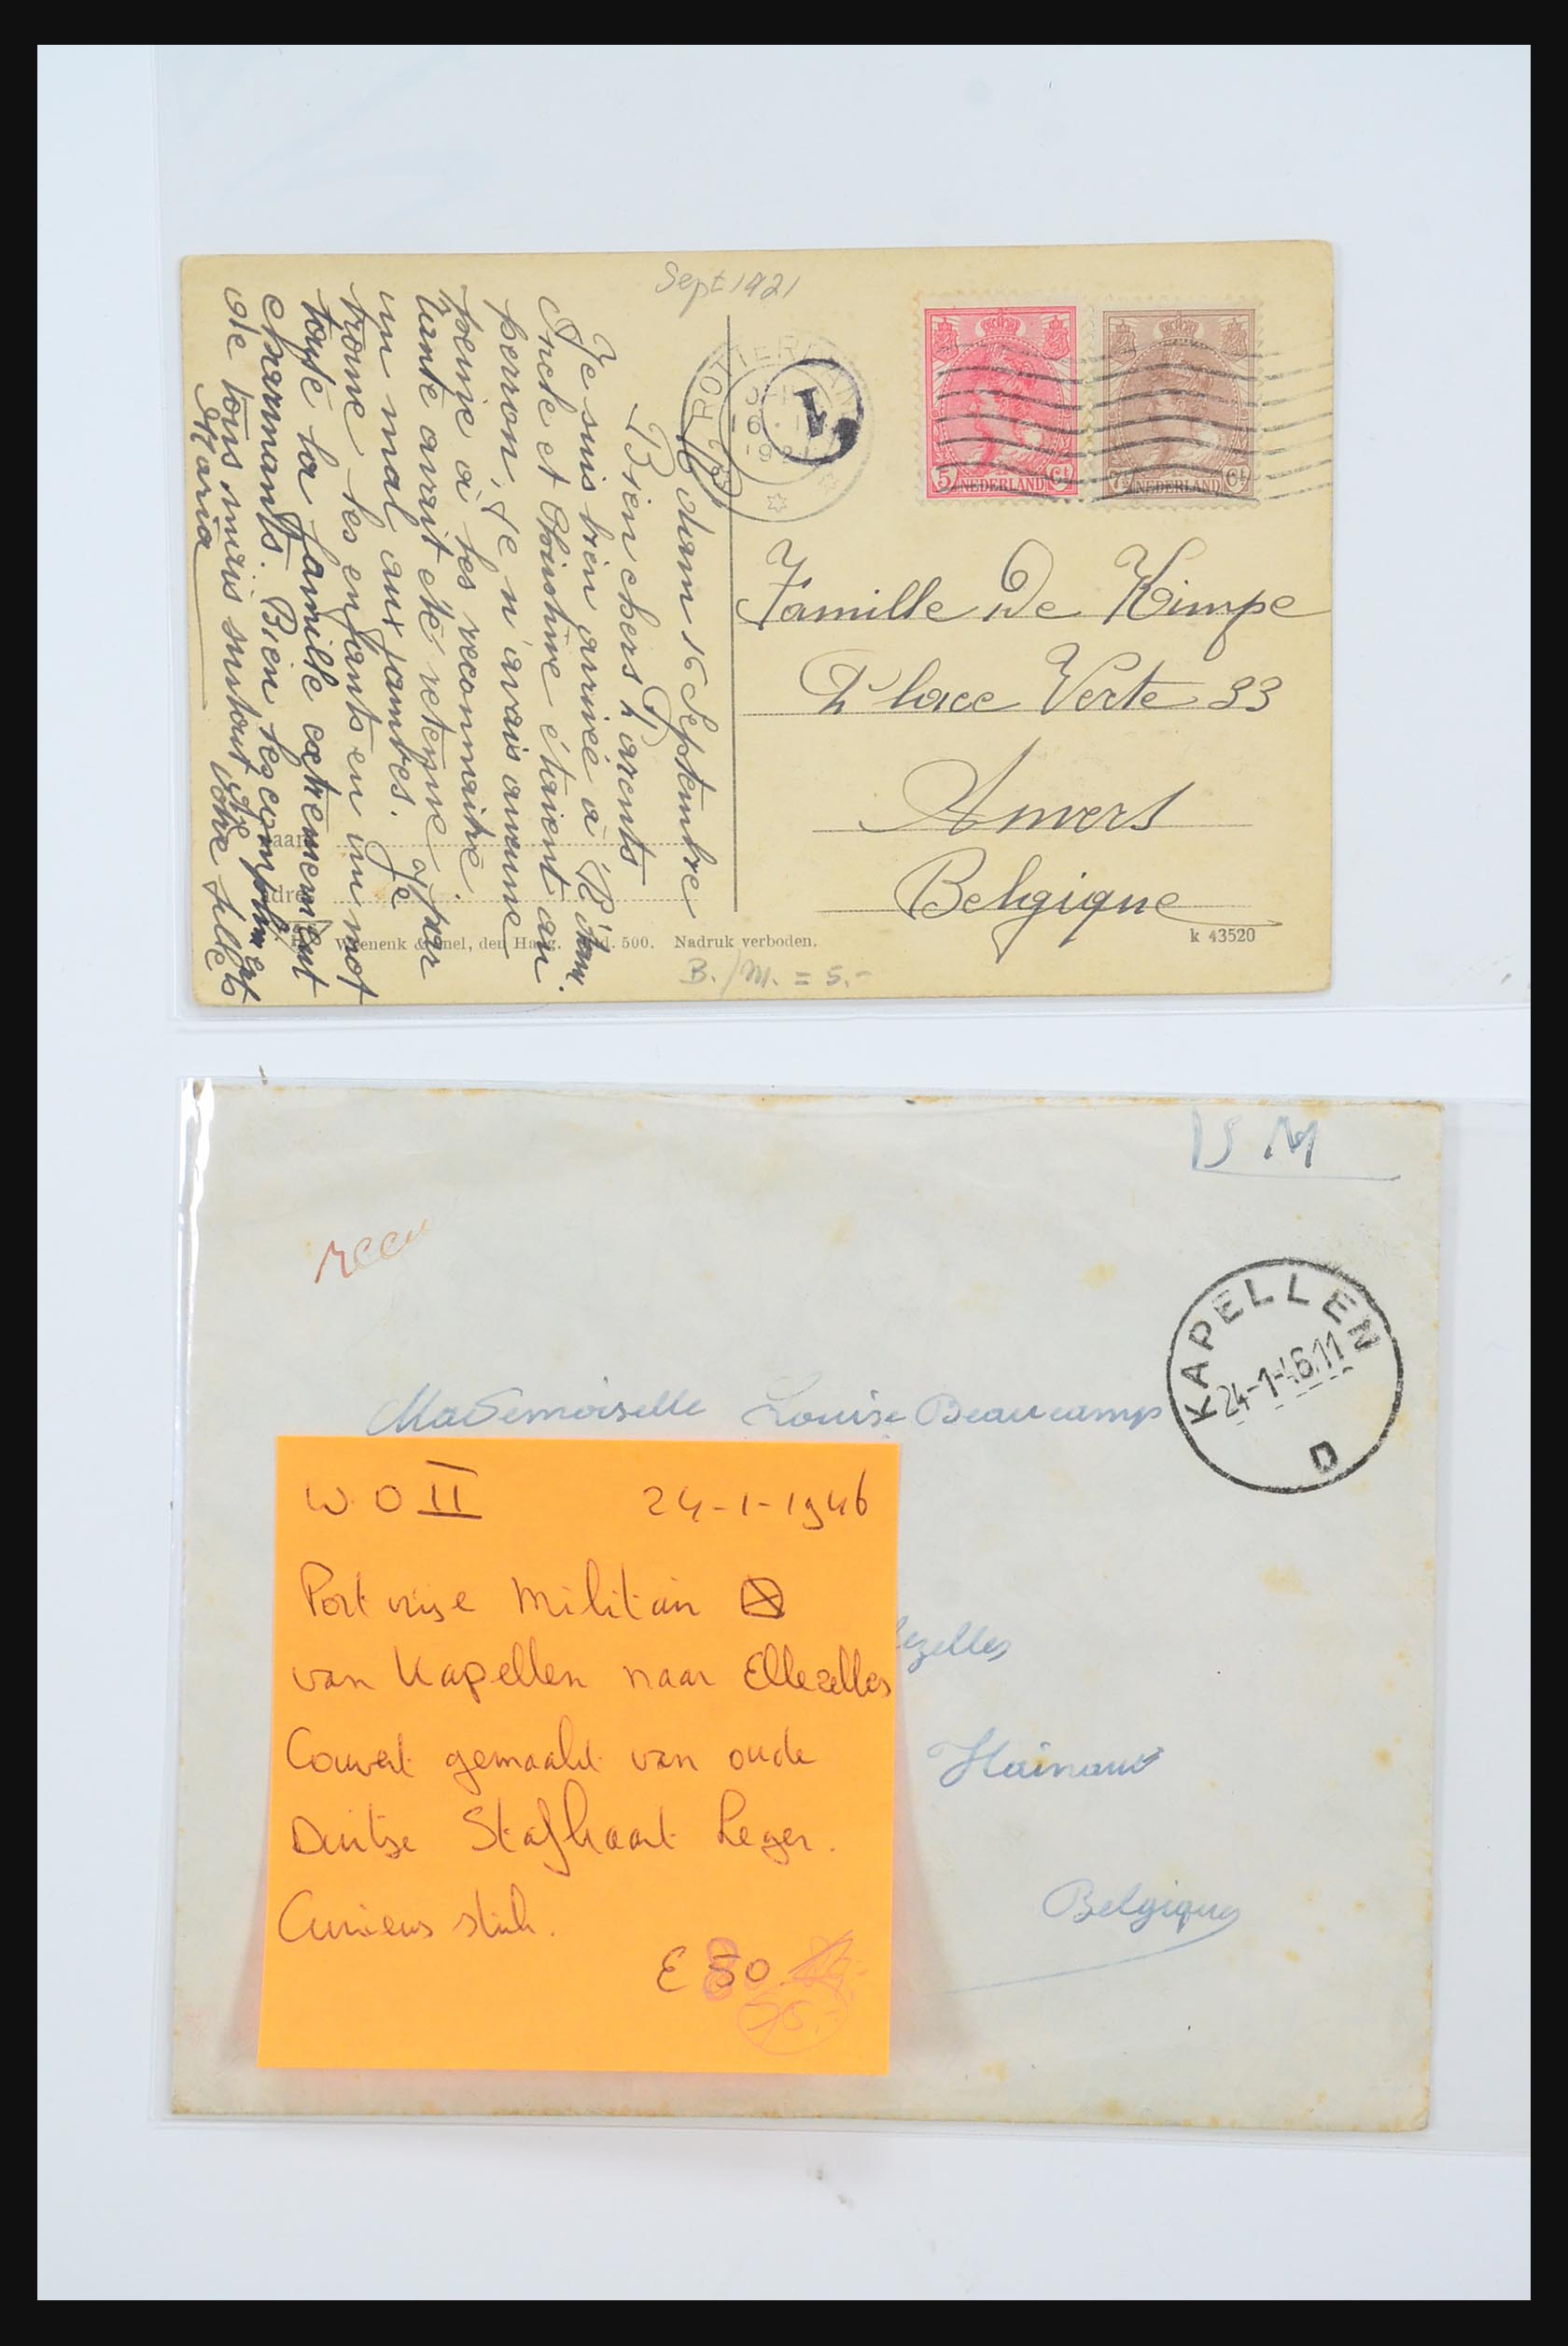 Sept 1921
ROTTERDAM
1921
1
5 Ct
NEDERLAND
7½ Ct
NEDERLAND
R'dam 16 Septembre
Bien chers Parents
Je suis bien arrivée à R'dam.
Oncle et Christine étaient au
perron, je n'avais aucune
peine à les reconnaitre.
Tante avait été retenue par
un mal aux jambes. Je
trouve les enfants en un mot
toute la famille extrêmement
charmants. Bien les compliments
de tous mais surtout de votre fille
Maria
Famille De Kimpe
Place Verte 33
Anvers
Belgique
k 43520
Weenenk & Snel, den Haag. 500. Nadruk verboden.
B./M. = 5.-
S M
KAPELLEN
24-1-46 11
D
Mademoiselle Louise Beaucamp
lezelles
Hainaut
Belgique
W O II 24-1-1946
Port vrije Militair
van Kapellen naar Ellezelles
Couvert gemaakt van oude
Duitse Stafkaart Leger.
Curieus stuk.